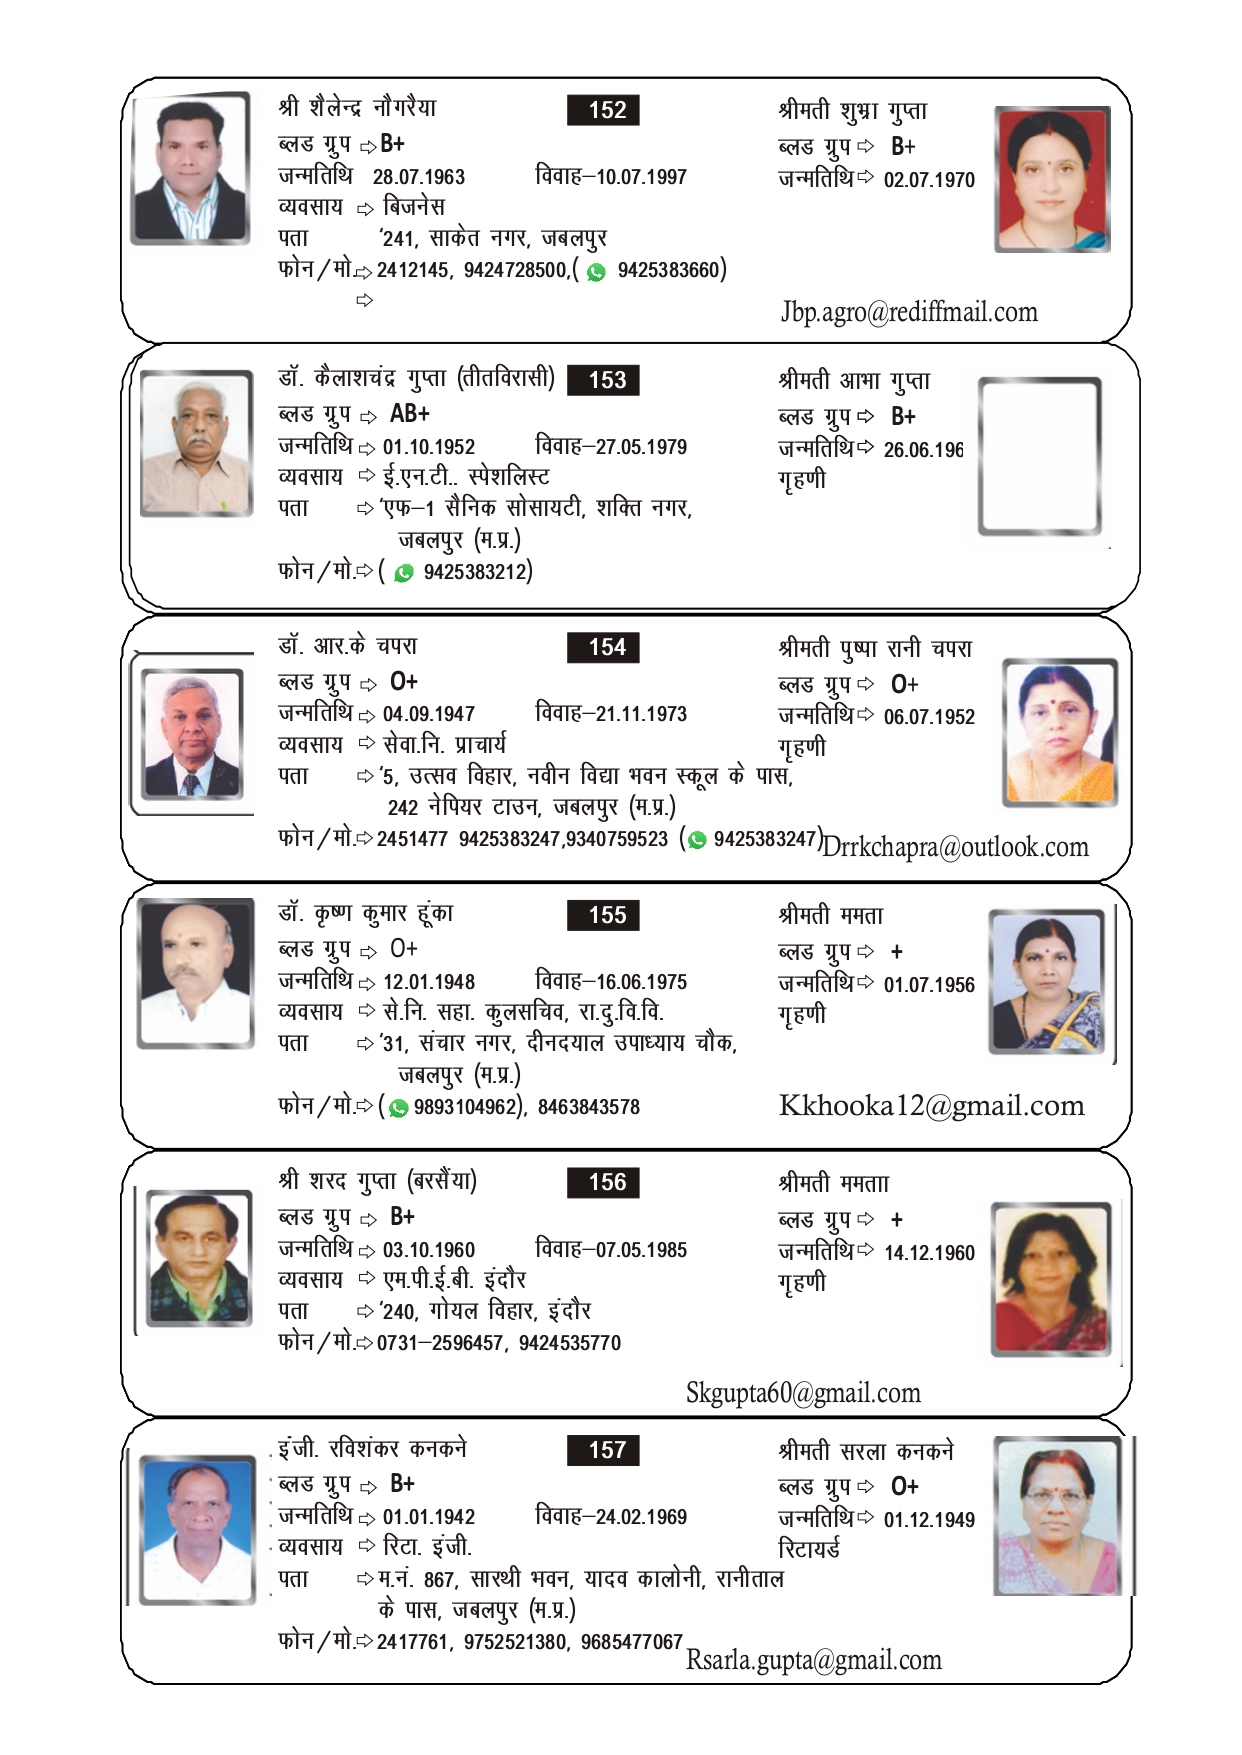 श्री शैलेन्द्र नौगरैया 152 श्रीमती शुभ्रा गुप्ता
ब्लड ग्रुप ⇨ B+ ब्लड ग्रुप ⇨ B+
जन्मतिथि 28.07.1963 विवाह–10.07.1997 जन्मतिथि ⇨ 02.07.1970
व्यवसाय ⇨ बिजनेस
पता '241, साकेत नगर, जबलपुर
फोन/मो.⇨ 2412145, 9424728500,( 9425383660)
⇨
Jbp.agro@rediffmail.com
डॉ. कैलाशचंद्र गुप्ता (तीतविरासी) 153 श्रीमती आभा गुप्ता
ब्लड ग्रुप ⇨ AB+ ब्लड ग्रुप ⇨ B+
जन्मतिथि ⇨ 01.10.1952 विवाह–27.05.1979 जन्मतिथि ⇨ 26.06.196
व्यवसाय ⇨ ई.एन.टी.. स्पेशलिस्ट गृहणी
पता ⇨ 'एफ–1 सैनिक सोसायटी, शक्ति नगर,
जबलपुर (म.प्र.)
फोन/मो.⇨ ( 9425383212)
डॉ. आर.के चपरा 154 श्रीमती पुष्पा रानी चपरा
ब्लड ग्रुप ⇨ O+ ब्लड ग्रुप ⇨ O+
जन्मतिथि ⇨ 04.09.1947 विवाह–21.11.1973 जन्मतिथि ⇨ 06.07.1952
व्यवसाय ⇨ सेवा.नि. प्राचार्य गृहणी
पता ⇨ '5, उत्सव विहार, नवीन विद्या भवन स्कूल के पास,
242 नेपियर टाउन, जबलपुर (म.प्र.)
फोन/मो.⇨ 2451477 9425383247,9340759523 ( 9425383247) Drrkchapra@outlook.com
डॉ. कृष्ण कुमार हूंका 155 श्रीमती ममता
ब्लड ग्रुप ⇨ O+ ब्लड ग्रुप ⇨ +
जन्मतिथि ⇨ 12.01.1948 विवाह–16.06.1975 जन्मतिथि ⇨ 01.07.1956
व्यवसाय ⇨ से.नि. सहा. कुलसचिव, रा.दु.वि.वि. गृहणी
पता ⇨ '31, संचार नगर, दीनदयाल उपाध्याय चौक,
जबलपुर (म.प्र.)
फोन/मो.⇨ ( 9893104962), 8463843578 Kkhooka12@gmail.com
श्री शरद गुप्ता (बरसैंया) 156 श्रीमती ममताा
ब्लड ग्रुप ⇨ B+ ब्लड ग्रुप ⇨ +
जन्मतिथि ⇨ 03.10.1960 विवाह–07.05.1985 जन्मतिथि ⇨ 14.12.1960
व्यवसाय ⇨ एम.पी.ई.बी. इंदौर गृहणी
पता ⇨ '240, गोयल विहार, इंदौर
फोन/मो.⇨ 0731–2596457, 9424535770
Skgupta60@gmail.com
इंजी. रविशंकर कनकने 157 श्रीमती सरला कनकने
ब्लड ग्रुप ⇨ B+ ब्लड ग्रुप ⇨ O+
जन्मतिथि ⇨ 01.01.1942 विवाह–24.02.1969 जन्मतिथि ⇨ 01.12.1949
व्यवसाय ⇨ रिटा. इंजी. रिटायर्ड
पता ⇨ म.नं. 867, सारथी भवन, यादव कालोनी, रानीताल
के पास, जबलपुर (म.प्र.)
फोन/मो.⇨ 2417761, 9752521380, 9685477067 Rsarla.gupta@gmail.com